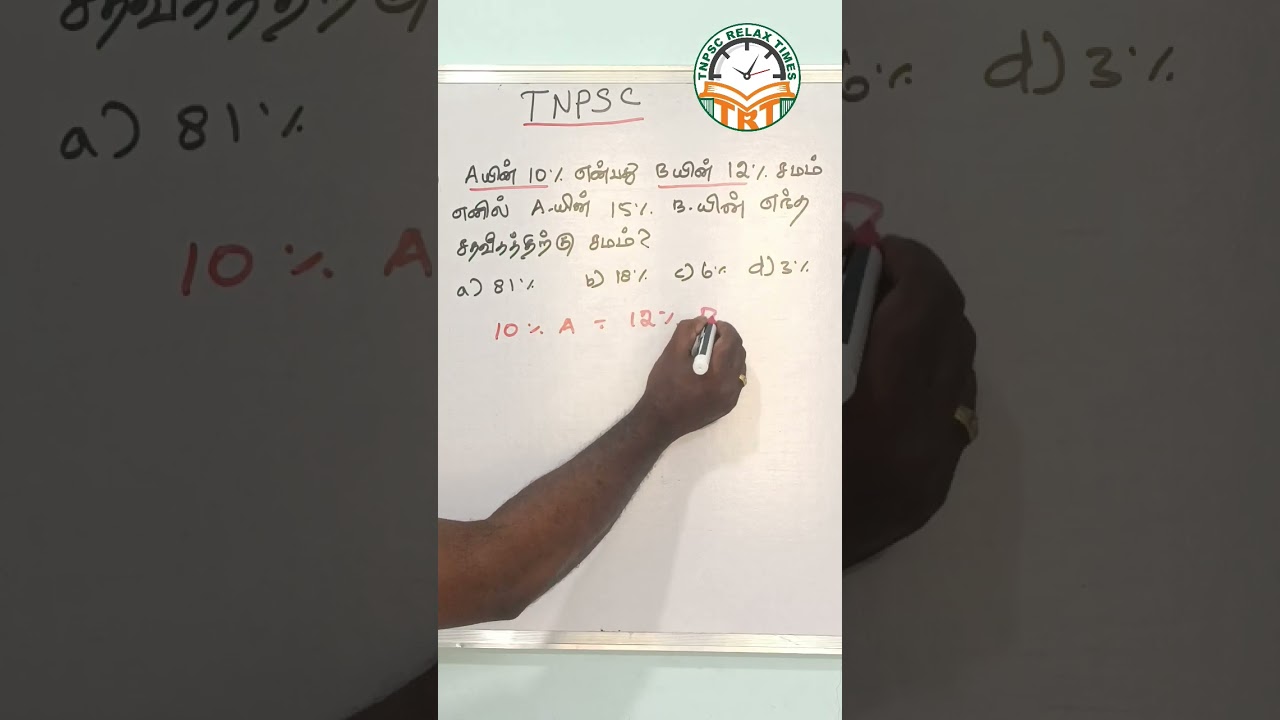 TNPSC RELAX TIMES
TRT
TNPSC
A யின் 10% என்பது B யின் 12% சமம்
எனில் A-யின் 15% B-யின் எந்த
சதவீதத்திற்கு சமம்?
a) 81% b) 18% c) 6% d) 3%
10% A = 12% B
a) 81%
6% d) 3%
10% A